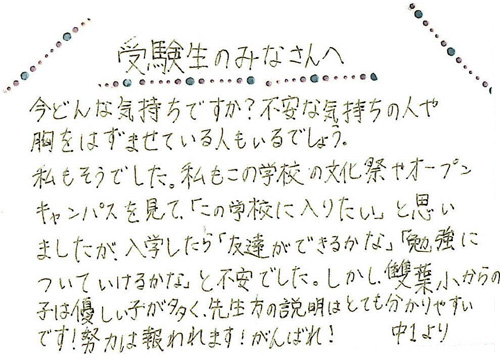 受験生のみなさんへ
今どんな気持ちですか？不安な気持ちの人や
胸をはずませている人もいるでしょう。
私もそうでした。私もこの学校の文化祭やオープン
キャンパスを見て、「この学校に入りたい」と思い
ましたが、入学したら「友達ができるかな」「勉強に
ついていけるかな」と不安でした。しかし、雙葉小からの
子は優しい子が多く、先生方の説明はとても分かりやすい
です！努力は報われます！がんばれ！ 中1より